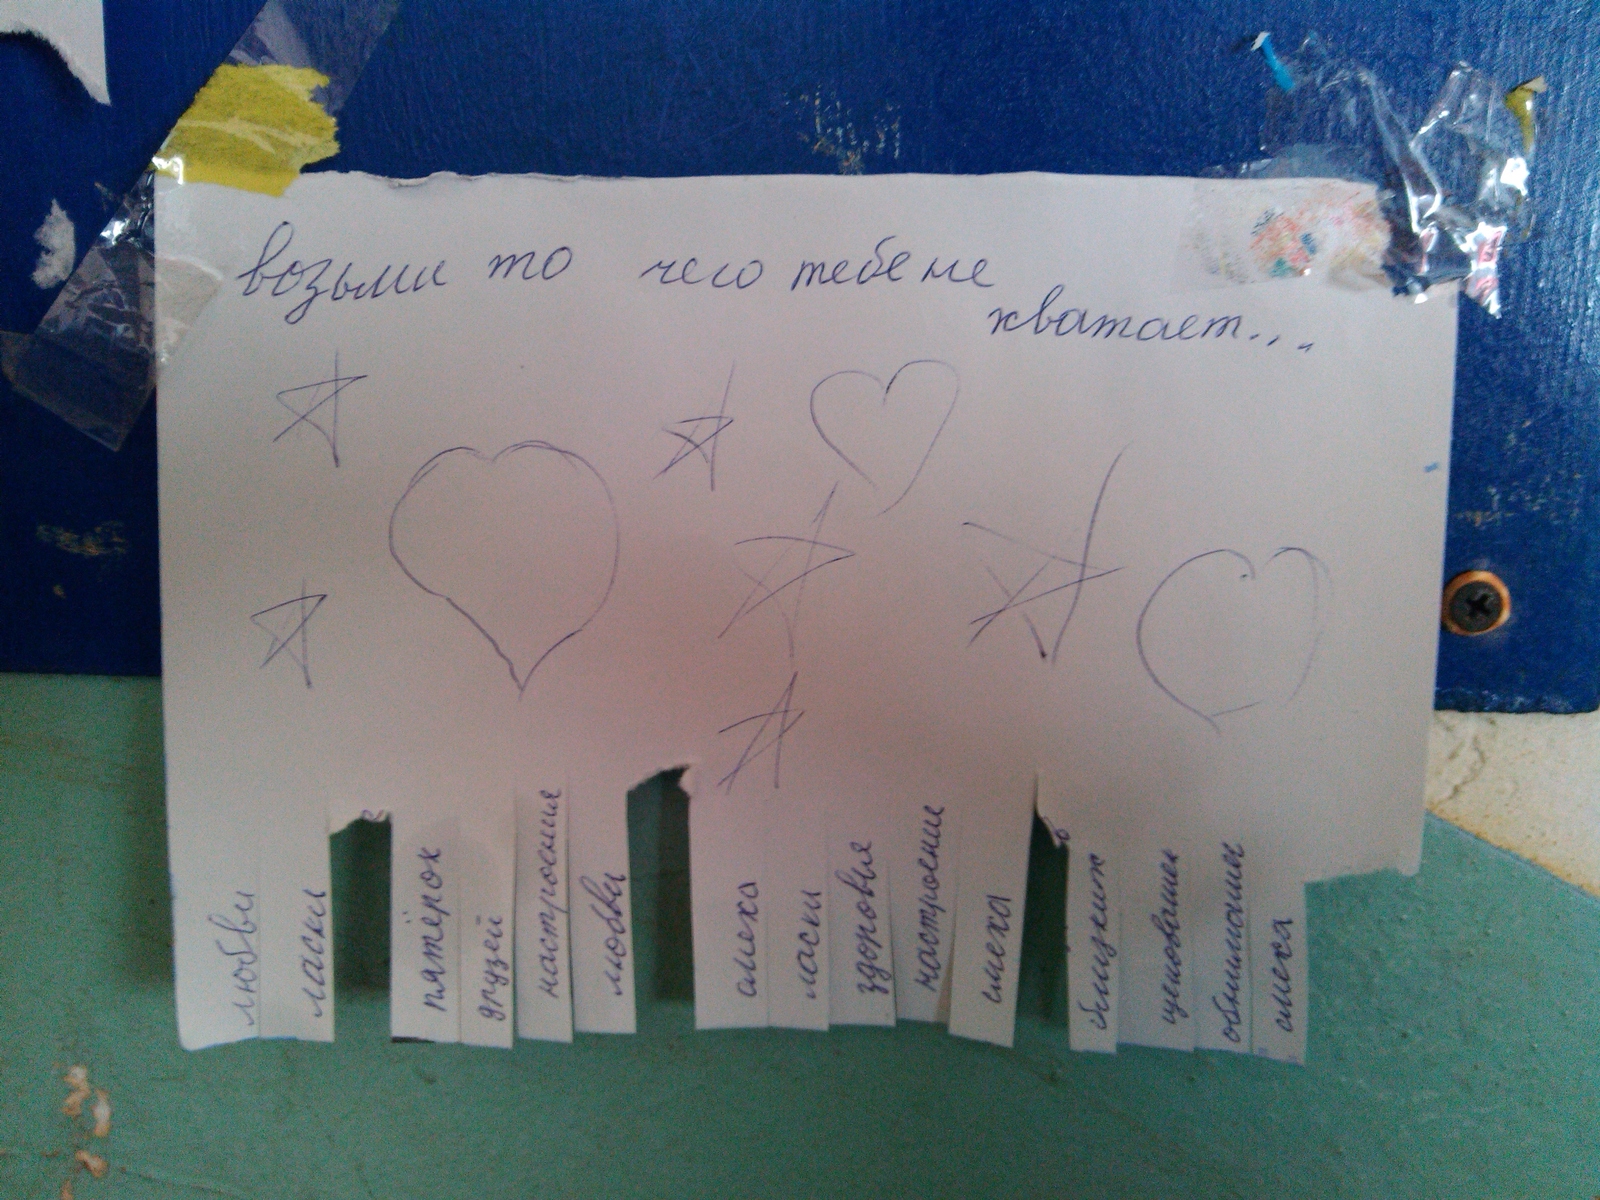 возьми то чего тебе не
хватает...
любви
ласки
пятёрок
друзей
настроения
любви
смеха
ласки
здоровья
настроения
смеха
обнимашек
смеха